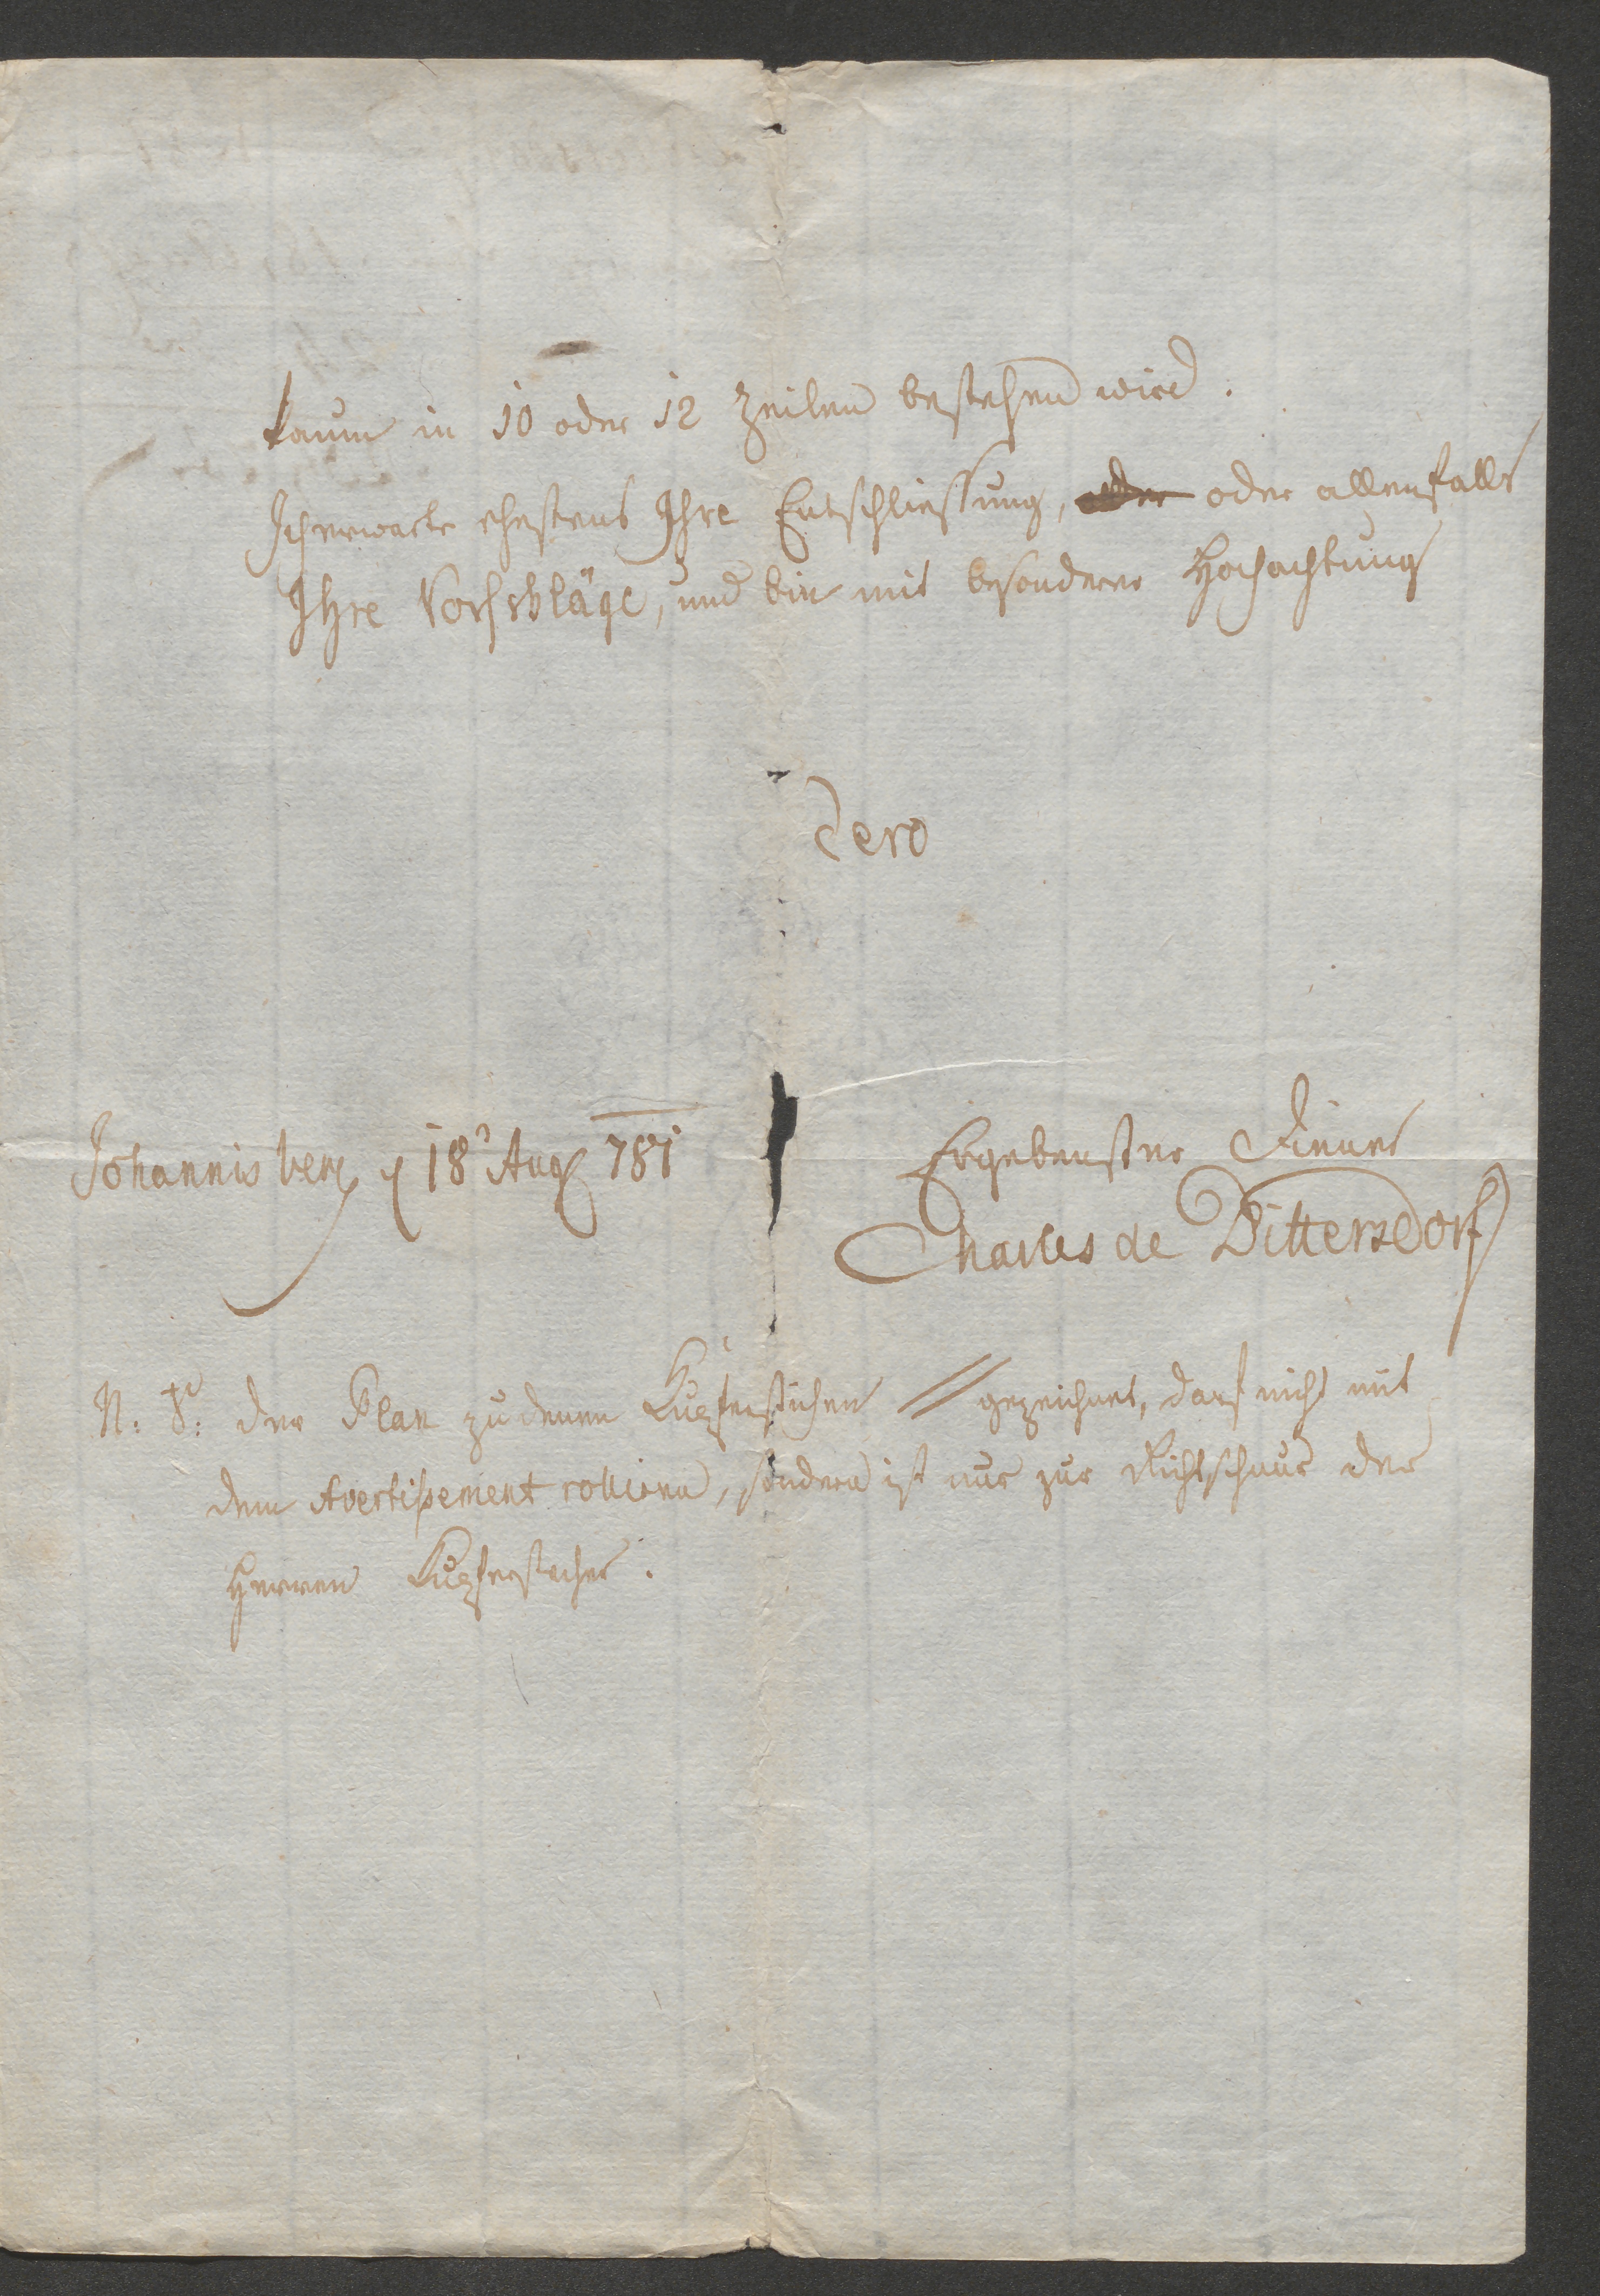 kaum in 10 oder 12 Zeilen bestehen wird.
Ich erwarte ehestens Ihre Entschliessung, oder oder allenfalls
Ihre Vorschläge, und bin mit besonderer Hochachtung
Dero
Johannisberg d 18t Aug 781
Ergebenster Diener
Charles de Dittersdorf
N: S: der Plan zu denen Kupferstichen // gezeichnet, darf nicht mit
dem Avertissement rolliren, sondern ist nur zur Richtschnur der
Herren Kupferstecher.